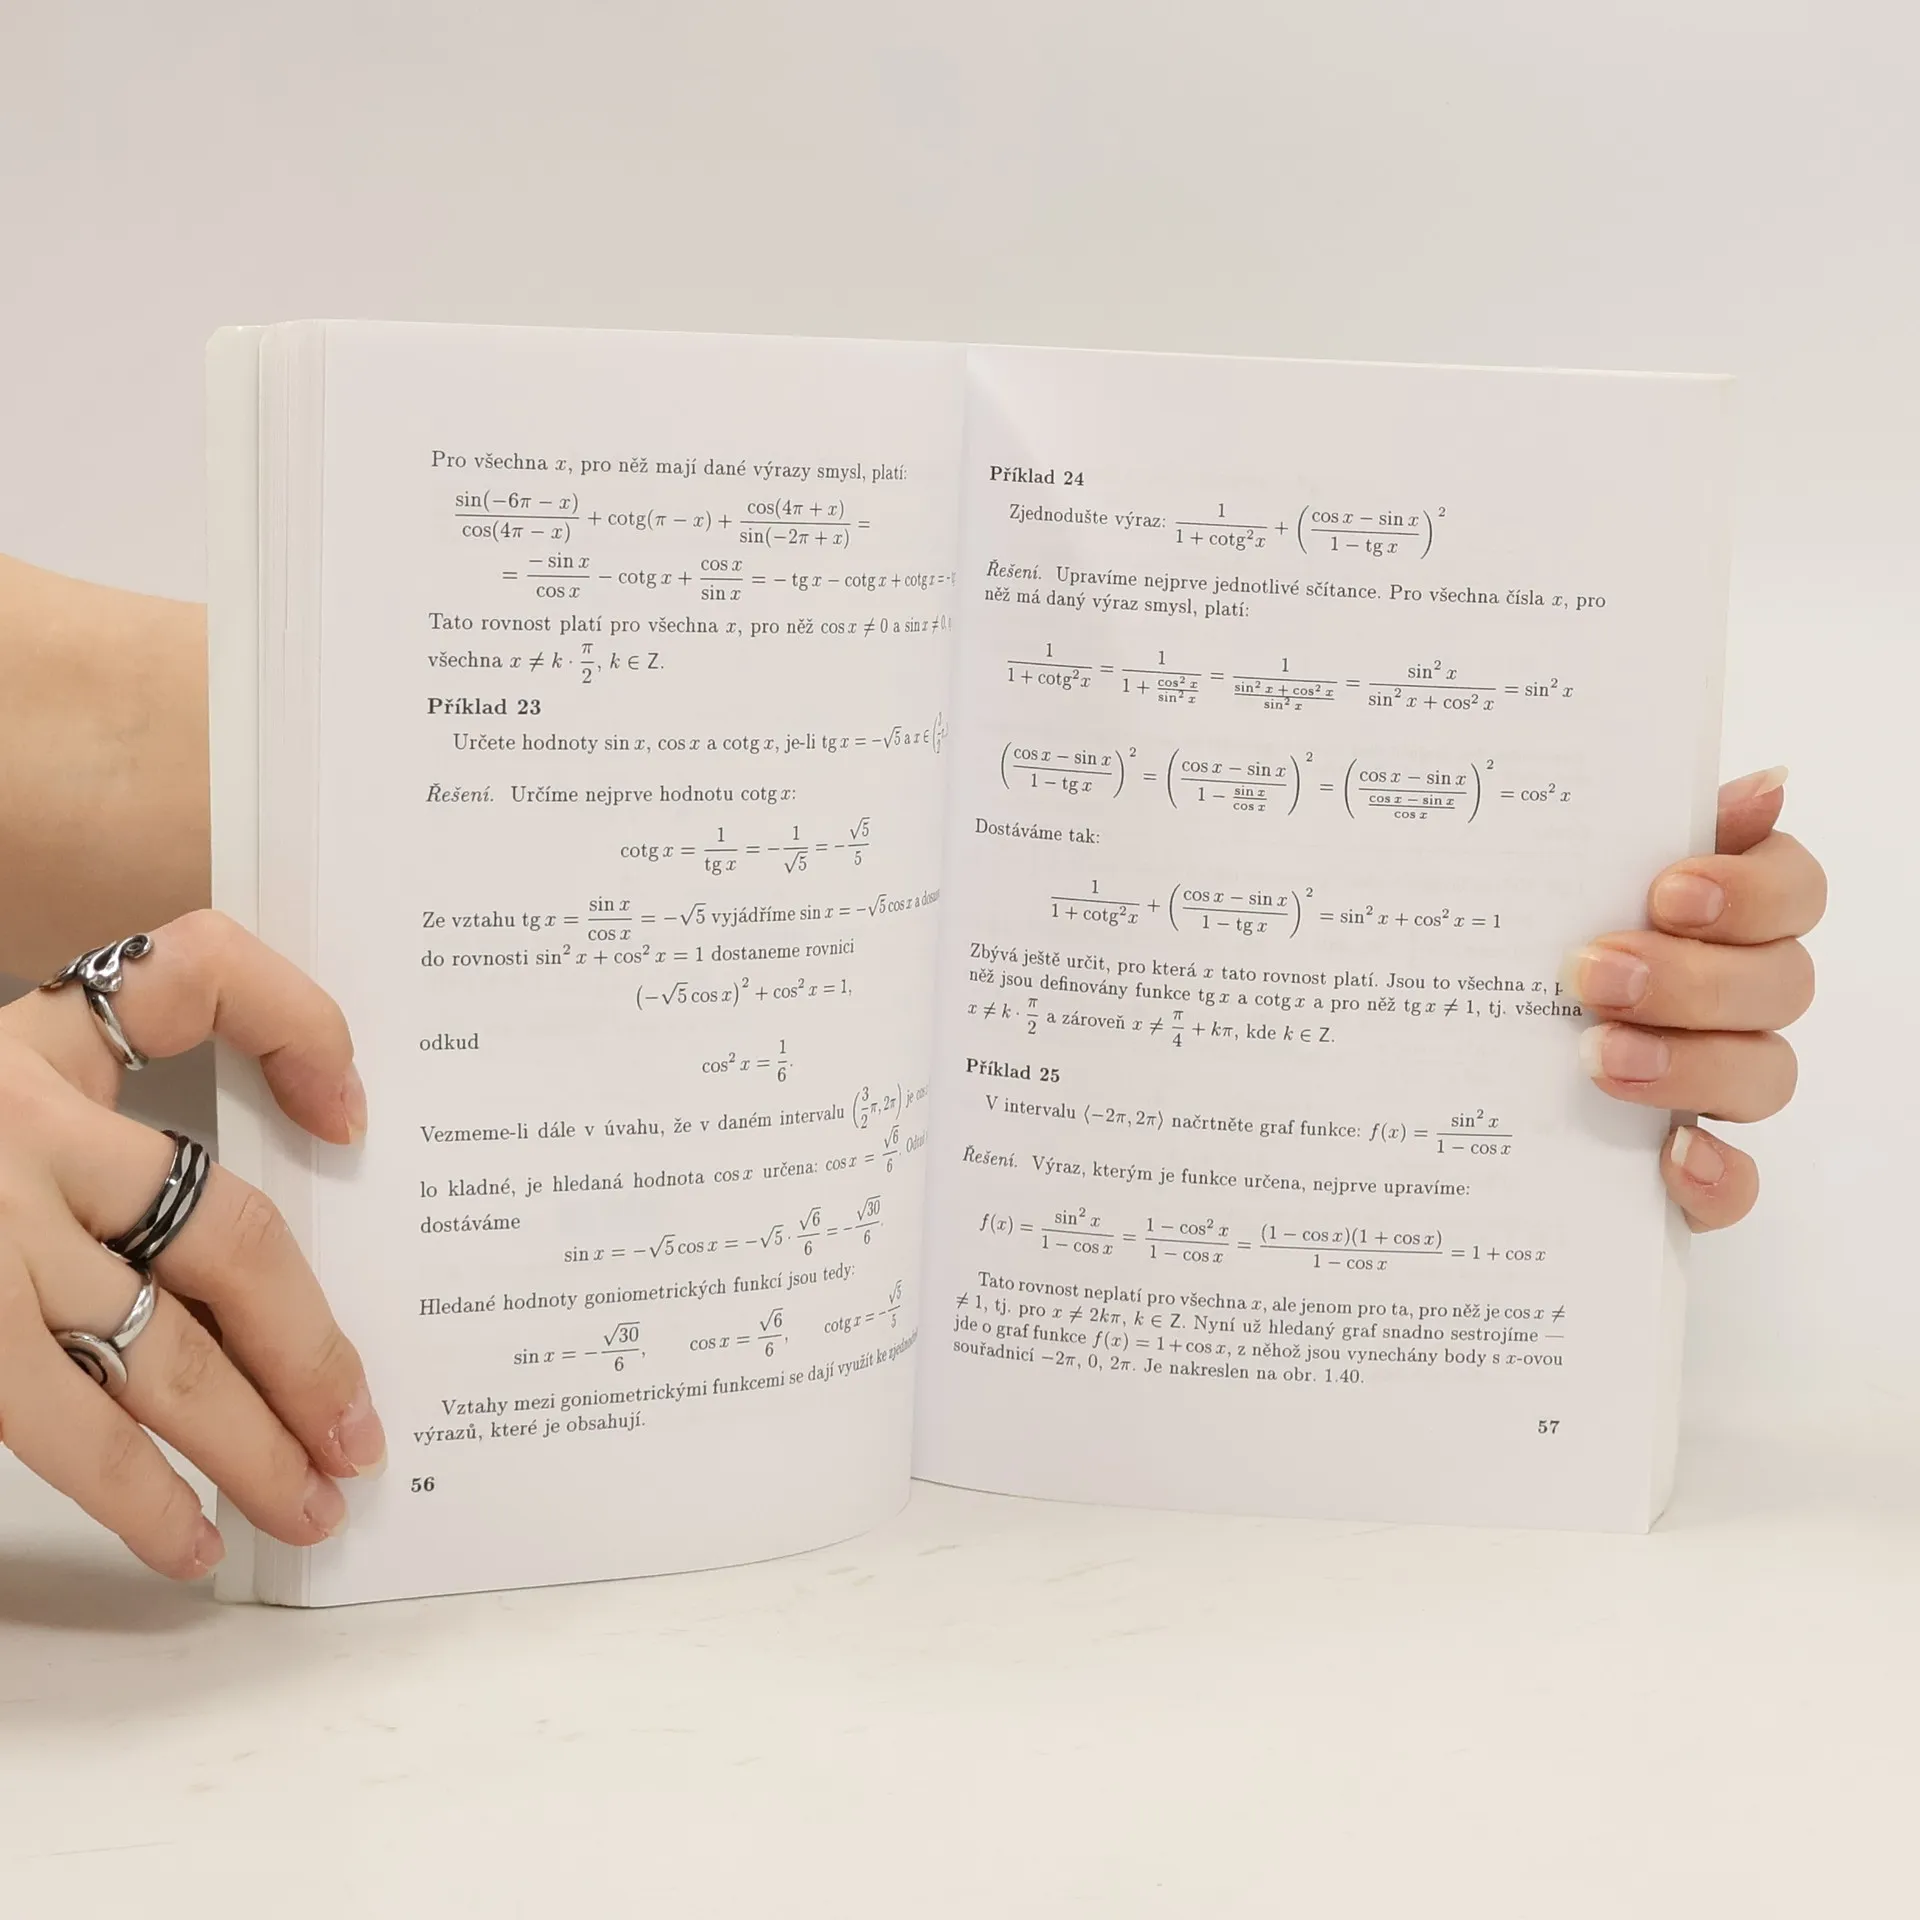 Pro všechna x, pro něž mají dané výrazy smysl, platí:
sin(−6π − x)/cos(4π − x) + cotg(π − x) + cos(4π + x)/sin(−2π + x) =
= − sin x/cos x − cotg x + cos x/sin x = − tg x − cotg x + cotg x = −
Tato rovnost platí pro všechna x, pro něž cos x ≠ 0 a sin x ≠ 0,
všechna x ≠ k · π/2, k ∈ Z.
Příklad 23
Určete hodnoty sin x, cos x a cotg x, je-li tg x = −√5 a x ∈ (3/2
Řešení. Určíme nejprve hodnotu cotg x:
cotg x = 1/tg x = −1/√5 = −√5/5
Ze vztahu tg x = sin x/cos x = −√5 vyjádříme sin x = −√5 cos x a
do rovnosti sin² x + cos² x = 1 dostaneme rovnici
(−√5 cos x)² + cos² x = 1,
odkud
cos² x = 1/6.
Vezmeme-li dále v úvahu, že v daném intervalu (3/2π, 2π) je
lo kladné, je hledaná hodnota cos x určena: cos x = √6/6.
dostáváme
sin x = −√5 cos x = −√5 · √6/6 = −√30/6.
Hledané hodnoty goniometrických funkcí jsou tedy:
sin x = −√30/6, cos x = √6/6, cotg x = −√5/5
Vztahy mezi goniometrickými funkcemi se dají využít ke
výrazů, které je obsahují.
56
Příklad 24
Zjednodušte výraz: 1/(1 + cotg²x) + ((cos x − sin x)/(1 − tg x))²
Řešení. Upravíme nejprve jednotlivé sčítance. Pro všechna čísla x, pro
něž má daný výraz smysl, platí:
1/(1 + cotg²x) = 1/(1 + cos² x/sin² x) = 1/((sin² x + cos² x)/sin² x) = sin² x/(sin² x + cos² x) = sin² x
((cos x − sin x)/(1 − tg x))² = ((cos x − sin x)/(1 − sin x/cos x))² = ((cos x − sin x)/((cos x − sin x)/cos x))² = cos² x
Dostáváme tak:
1/(1 + cotg²x) + ((cos x − sin x)/(1 − tg x))² = sin² x + cos² x = 1
Zbývá ještě určit, pro která x tato rovnost platí. Jsou to všechna x,
něž jsou definovány funkce tg x a cotg x a pro něž tg x ≠ 1, tj. všechna
x ≠ k · π/2 a zároveň x ≠ π/4 + kπ, kde k ∈ Z.
Příklad 25
V intervalu ⟨−2π, 2π⟩ načrtněte graf funkce: f(x) = sin² x/(1 − cos x)
Řešení. Výraz, kterým je funkce určena, nejprve upravíme:
f(x) = sin² x/(1 − cos x) = (1 − cos² x)/(1 − cos x) = (1 − cos x)(1 + cos x)/(1 − cos x) = 1 + cos x
Tato rovnost neplatí pro všechna x, ale jenom pro ta, pro něž je cos x ≠
≠ 1, tj. pro x ≠ 2kπ, k ∈ Z. Nyní už hledaný graf snadno sestrojíme —
jde o graf funkce f(x) = 1 + cos x, z něhož jsou vynechány body s x-ovou
souřadnicí −2π, 0, 2π. Je nakreslen na obr. 1.40.
57